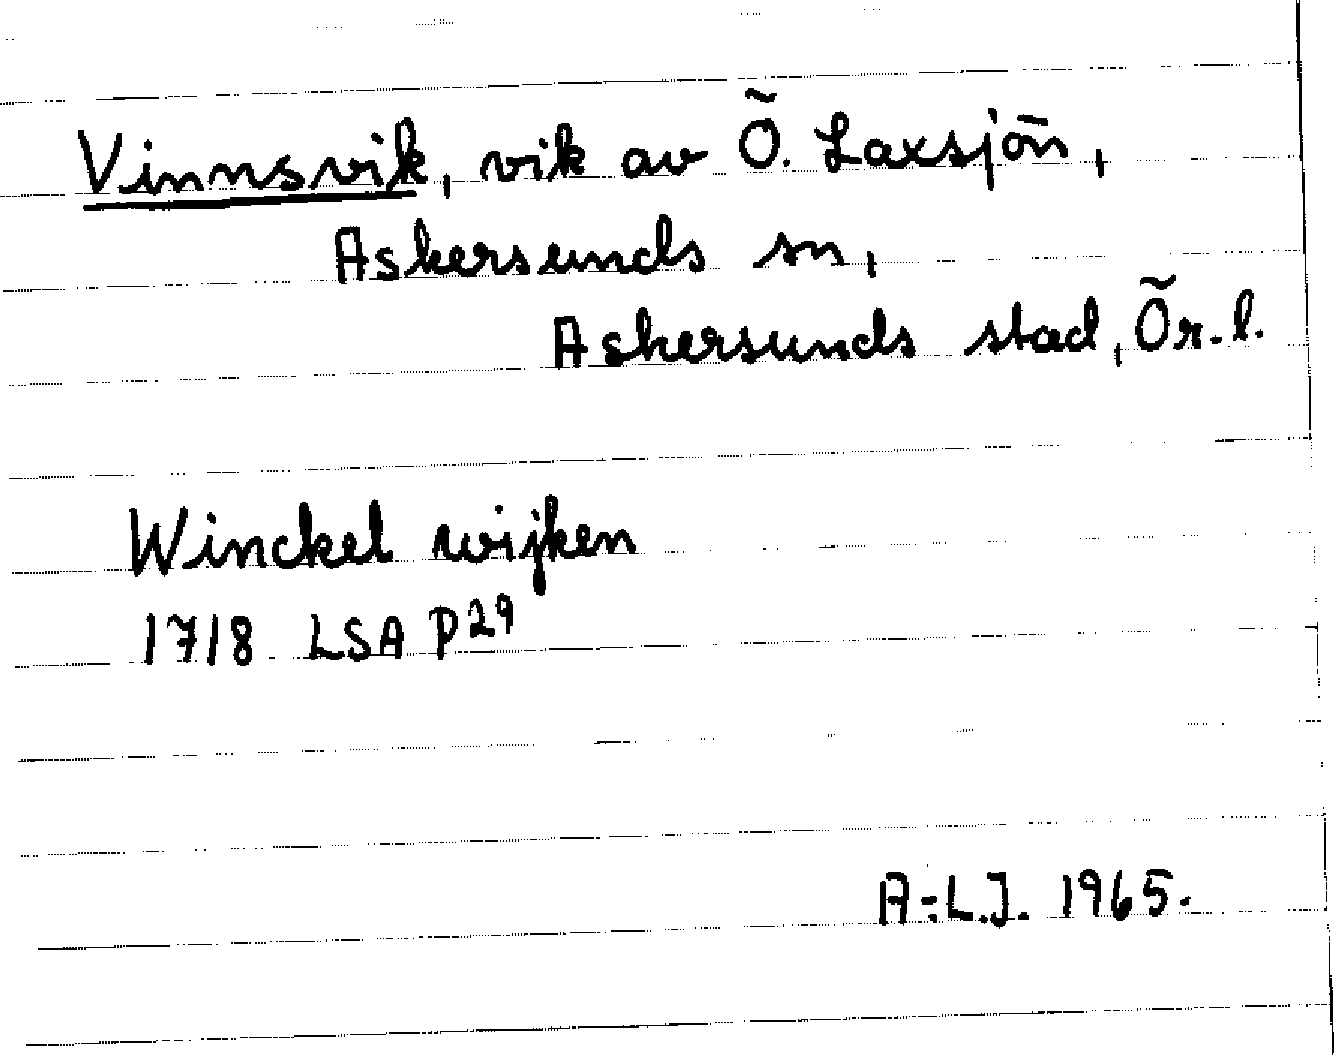 Vinnsvik, vik av Ö. Laxsjön,
Askersunds sn,
Askersunds stad, Ör. l.
Winckel wijken
1718 LSA P29
A-L.J. 1965.